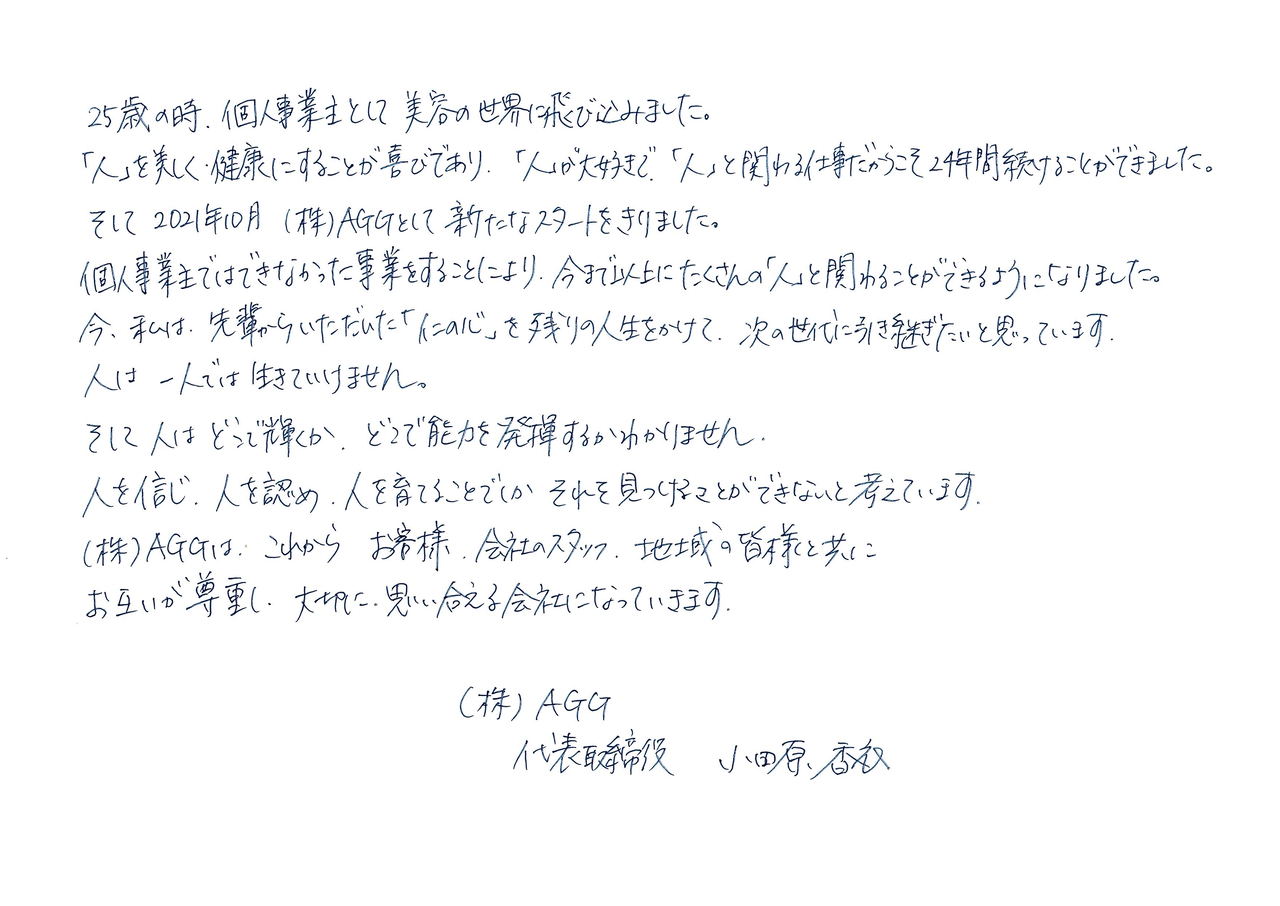 25歳の時、個人事業主として 美容の世界に飛び込みました。
「人」を美しく・健康にすることが喜びであり、「人」が大好きで、「人」と関わる仕事だからこそ24年間続けることができました。
そして 2021年10月 (株)AGGとして 新たなスタートをきりました。
個人事業主ではできなかった事業をすることにより、今まで以上にたくさんの「人」と関わることができるようになりました。
今、私は、先輩からいただいた「仁の心」を残りの人生をかけて、次の世代に引き継ぎたいと思っています。
人は 一人では生きていけません。
そして人は どこで輝くか、どこで能力を発揮するかわかりません。
人を信じ、人を認め、人を育てることでしか それを見つけることができないと考えています。
(株)AGGは、これから お客様、会社のスタッフ、地域の皆様と共に
お互いが尊重し、大切に、思い合える会社になっていきます。
(株) AGG
代表取締役 小田原 香衣